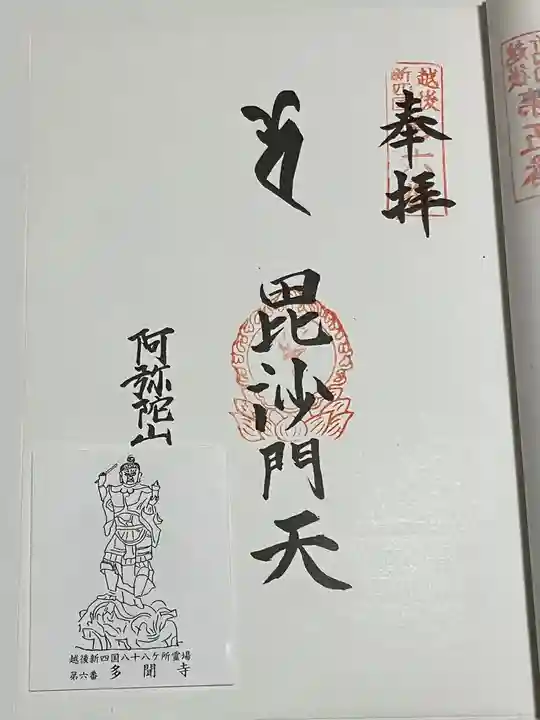 奉拝
越後
毘沙門天
阿弥陀山
越後新四国八十八ケ所霊場
第六番 多聞寺